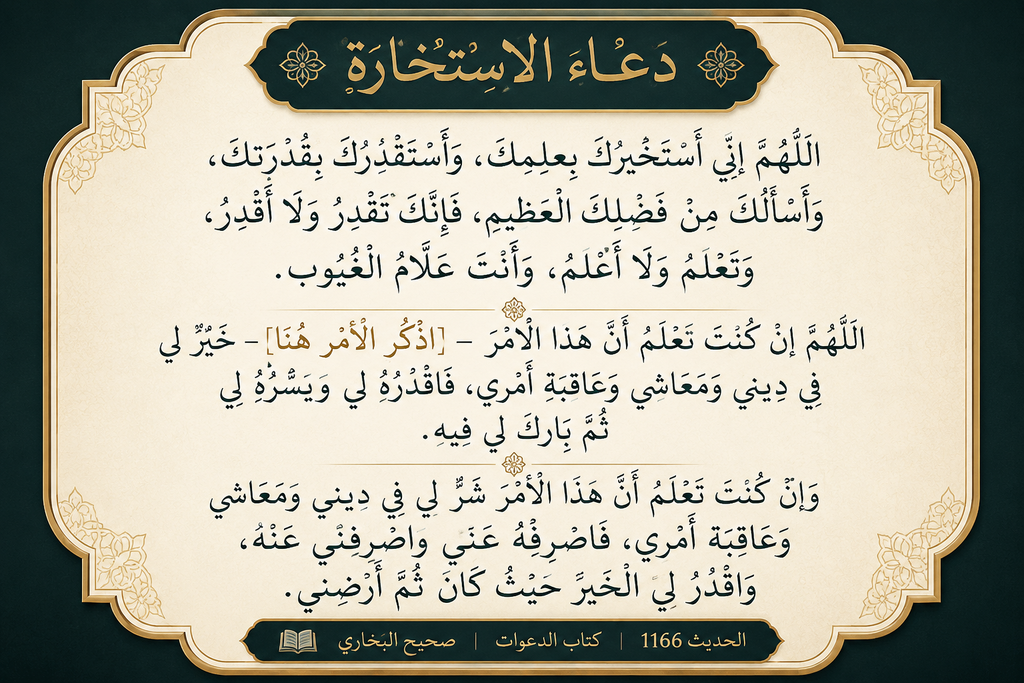 دَعُاءَ الاِسْتُخَارَةِ
اللَّهُمَّ إنِّي أَسْتَخْيرُكَ بِعلِمِكَ، وَأَسْتَقْدُرُكَ بِقُدْرَتكَ،
وَأَسْأَلُكَ مِنْ فَضْلِكَ الْعَظيمِ، فَإِنَّكَ تَقْدِرُ وَلَا أَقْدِرُ،
وَتَعْلَمُ وَلَا أَعْلَمُ، وَأَنْتَ عَلَّامُ الْغُيُوب.
اللَّهُمَّ إنْ كُنْتَ تَعْلَمُ أَنَّ هَذا الْامْرَ – [اذْكُر الْأمْر هُنَا] – خَيْرٌ لي
فِي دِيني وَمَعَاشِي وَعَاقبَةِ أَمْري، فَاقْدُرُهُ لي وَيَسُّرْهُ لِي
ثُمَّ بَِاركَ لي فِيهِ.
وَإنْ كُنْتَ تَعْلَمُ أَنَّ هَذَا الْأَمْرَ شَرٌّ لِي فِي دِيني وَمَعَاشي
وَعَاقِبَة أَمْري، فَاصْرِفْهُ عَنّي وَاصْرِفِنْي عَنْهُ،
وَاقْدُرُ لِيَ الْخَيرَ حَيْثُ كَانَ ثُمَّ أَرْضِني.
الحديث 1166 | كتاب الدعوات | صحيح البَخاري